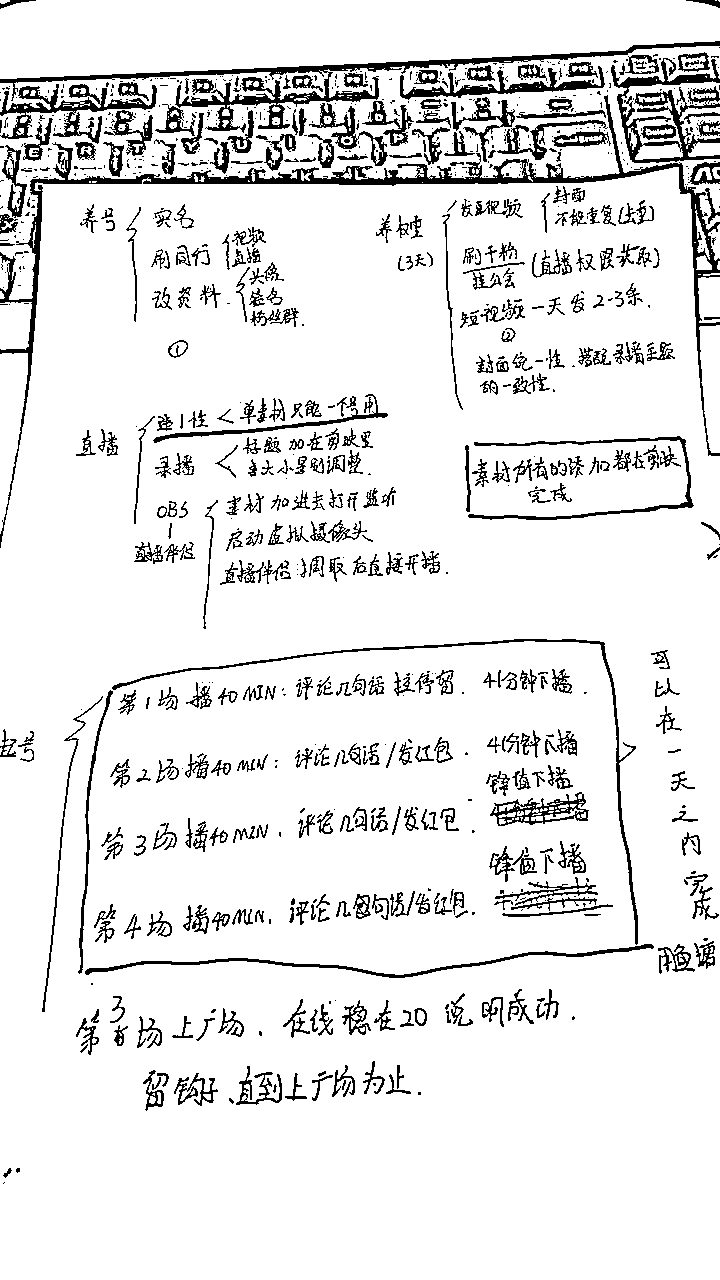 养号
实名
刷同行
视频
直播
改资料
头像
签名
粉丝群
①
养权重
(3天)
发五视频
封面
不能重复(去重)
刷千粉
挂公会
(直播权限获取)
短视频一天发2-3条.
②
封面统一性.
的一致性.
直播
单素材只能一个号用
录播
标题加在剪映里
OBS
直播伴侣
素材加进去打开监听
启动虚拟摄像头
直播伴侣调取后直接开播.
素材所有的添加都在剪映
完成
起号
第1场 播40MIN: 评论几句话 拉停留. 41分钟下播.
第2场 播40MIN: 评论几句话/发红包. 41分钟下播
第3场 播40MIN. 评论几句话/发红包. 锋值下播
第4场 播40MIN. 评论几句话/发红包. 锋值下播
可以在一天之内完成
用鱼塘
第3场上广场. 在线稳在20 说明成功.
留钩子、直到上广场为止.